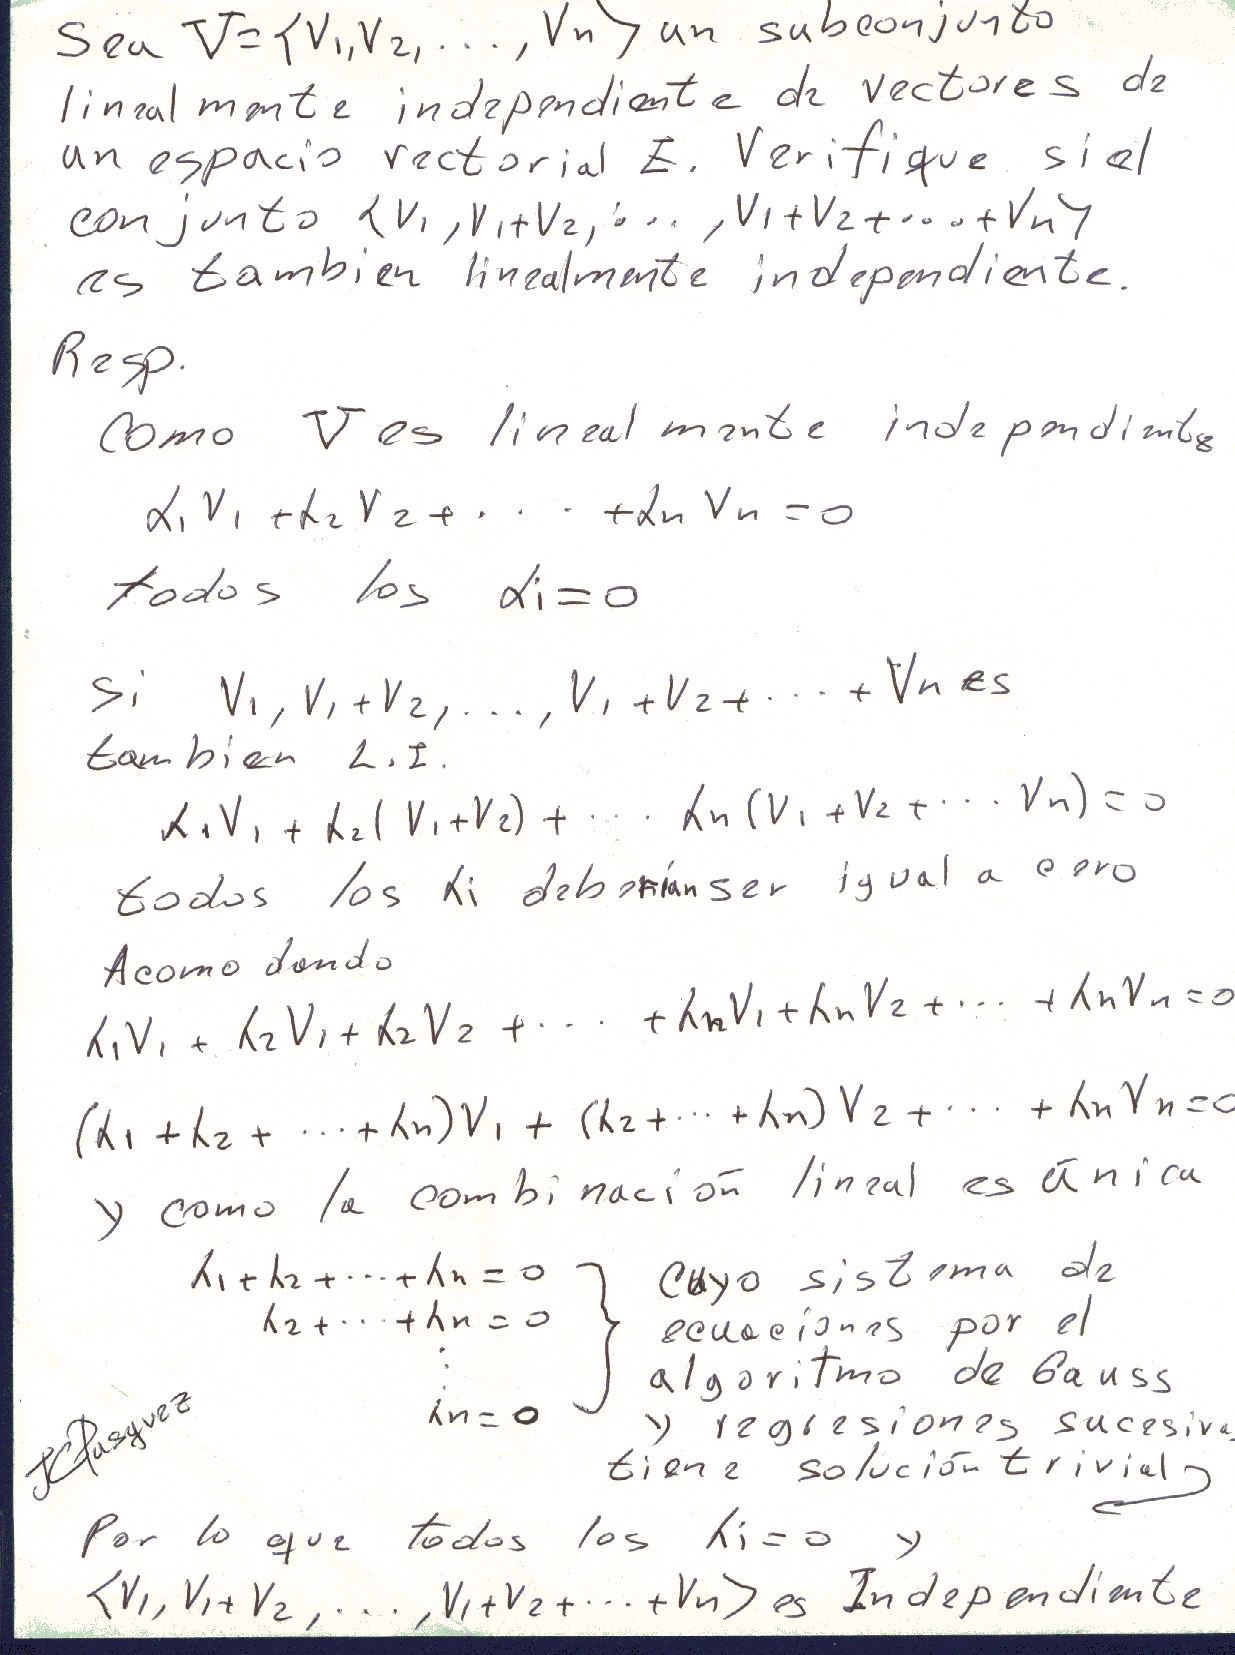 Sea V={V1,V2,...,Vn} un subconjunto
linealmente independiente de vectores de
un espacio vectorial E. Verifique si el
conjunto {V1,V1+V2,...,V1+V2+...+Vn}
es tambien linealmente independiente.
Resp.
Como V es linealmente independiente
α1V1+α2V2+....+αnVn=0
todos los αi=0
Si V1,V1+V2,...,V1+V2+...+Vn es
tambien L.I.
λ1V1+λ2(V1+V2)+...λn(V1+V2+...Vn)=0
todos los λi deberían ser igual a cero
Acomodando
λ1V1+λ2V1+λ2V2+...+λnV1+λnV2+...+λnVn=0
(λ1+λ2+...+λn)V1+(λ2+...+λn)V2+...+λnVn=0
y como la combinación lineal es única
λ1+λ2+...+λn=0 } Cuyo sistema de
λ2+...+λn=0 ecuaciones por el
⋮ algoritmo de Gauss
λn=0 y regresiones sucesiva
tiene solución trivial
JCPusquez
Por lo que todos los λi=0 y
{V1,V1+V2,...,V1+V2+...+Vn} es Independiente